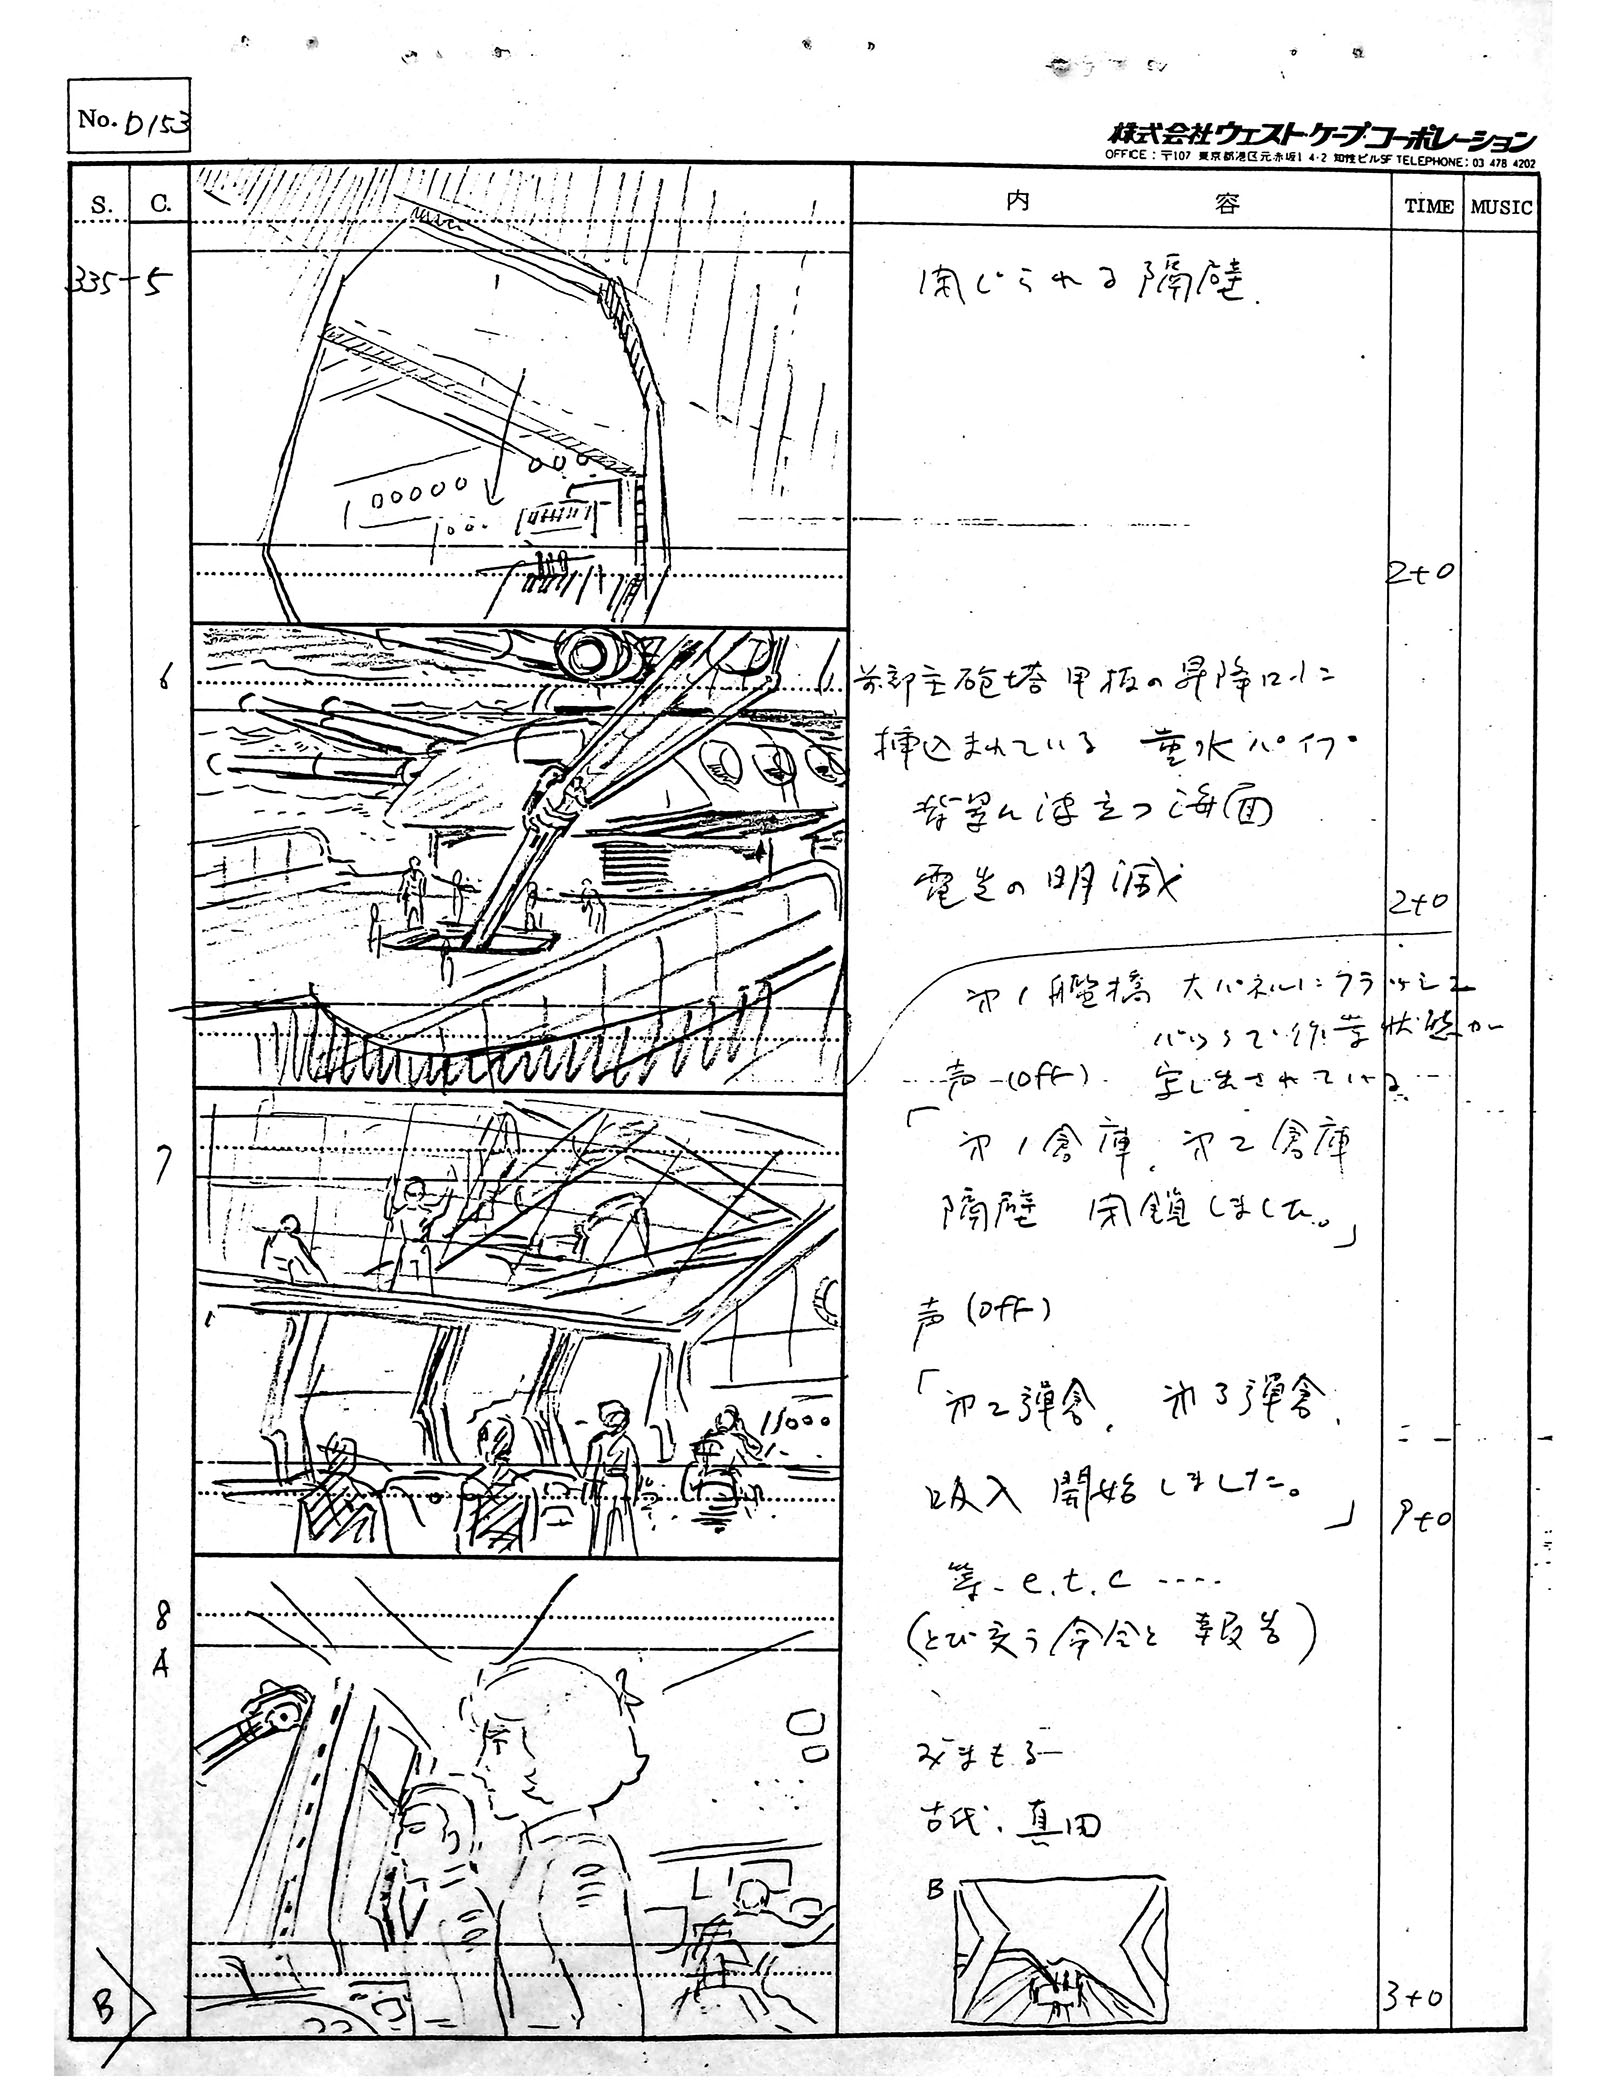 No. D153
株式会社ウェスト・ケープ・コーポレーション
OFFICE：〒107 東京都港区元赤坂1-4-2 知性ビル5F TELEPHONE：03 478 4202
S. C. 内 容 TIME MUSIC
335-5
閉じられる隔壁.
2+0
6
前部主砲塔甲板の昇降口に
挿込まれている 重水パイプ
背景に波立つ海面
電光の明滅
2+0
第1艦橋 大パネルにフラッシュ
バックで作業状態が
写し出されている
7
声 (off)
「第1倉庫、第2倉庫
隔壁 閉鎖しました。」
声 (off)
「第2弾倉、第3弾倉、
吸入 開始しました。」
9+0
等 e.t.c ....
(とび交う命令と報告)
8
A
みまもる
古代、真田
B
B
3+0